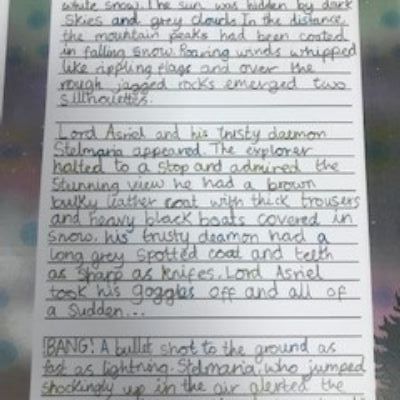 white snow. The sun was hidden by dark
skies and grey clouds. In the distance,
the mountain peaks had been coated
in falling snow. Roaring winds whipped
like rippling flags and over the
rough jagged rocks emerged two
sillhouettes.
Lord Asriel and his trusty daemon
Stelmaria appeared. The explorer
halted to a stop and admired the
stunning view he had a brown
bulky leather coat with thick trousers
and heavy black boats covered in
snow. his trusty deamon had a
long grey spotted coat and teeth
as sharp as knifes. Lord Asriel
took his goggles off and all of
a sudden...
BANG! A bullet shot to the ground as
fast as lightning. Stelmaria, who jumped
shockingly up in the air alerted the